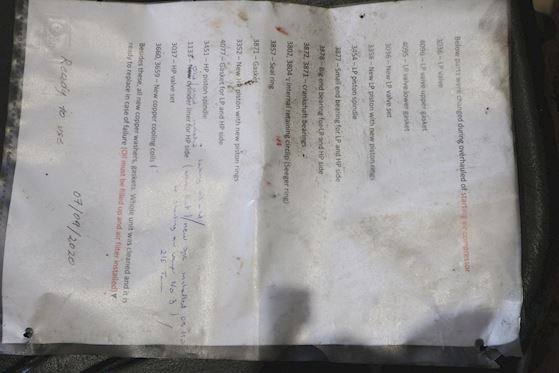 Below parts were changed during overhauled of starting air compressor
3036 – LP valve
4096 – LP valve upper gasket
4095 – LP valve lower gasket
3036 – New LP valve set
3358 – New LP piston with new piston rings
3454 – LP piston spindle
3877 – Small end bearing for LP and HP side
3876 – Big end bearing for LP and HP side
3872, 3871 – crankshaft bearings
3802, 3804 – internal retaining circlip (Seeger ring)
3857 – Seal ring
3873 – Gasket
3352 – New HP piston with new piston rings
4077 – Gasket for LP and HP side
3451 – HP piston spindle
1133 – New cylinder liner for HP side
3037 – HP valve set
3660, 3659 – New copper cooling coils
Besides these, all new copper washers, gaskets. Whole unit was cleaned and it is
ready to replace in case of failure (Oil must be filled up and air filter installed)
READY TO USE
07/09/2020